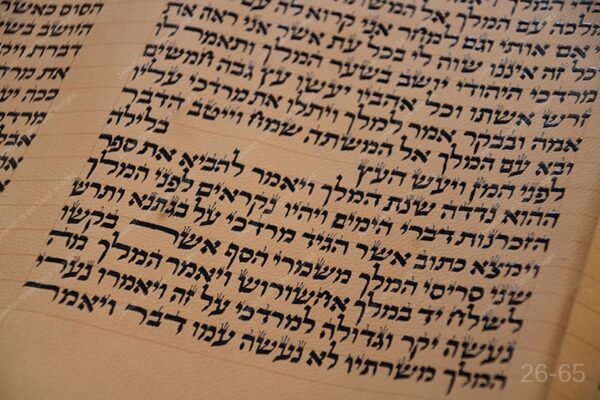 המלך
מלכה עם המלך אל
כי אם אותי וגם למחר אני קרוא לה עם
וכל זה איננו שוה לי בכל עת אשר אני ראה את
מרדכי היהודי יושב בשער המלך ותאמר לו
זרש אשתו וכל אהביו יעשו עץ גבה חמשים
אמה ובבקר אמר למלך ויתלו את מרדכי עליו
ובא עם המלך אל המשתה שמח וייטב הדבר
לפני המן ויעש העץ בלילה
ההוא נדדה שנת המלך ויאמר להביא את ספר
הזכרנות דברי הימים ויהיו נקראים לפני המלך
וימצא כתוב אשר הגיד מרדכי על בגתנא ותרש
שני סריסי המלך משמרי הסף אשר בקשו
לשלח יד במלך אחשורוש ויאמר המלך מה
נעשה יקר וגדולה למרדכי על זה ויאמרו נערי
המלך משרתיו לא נעשה עמו דבר ויאמר
הסוס כאשר
היושב
דברת
את מרדכי
ככה
מרדכי
אבל
26-65